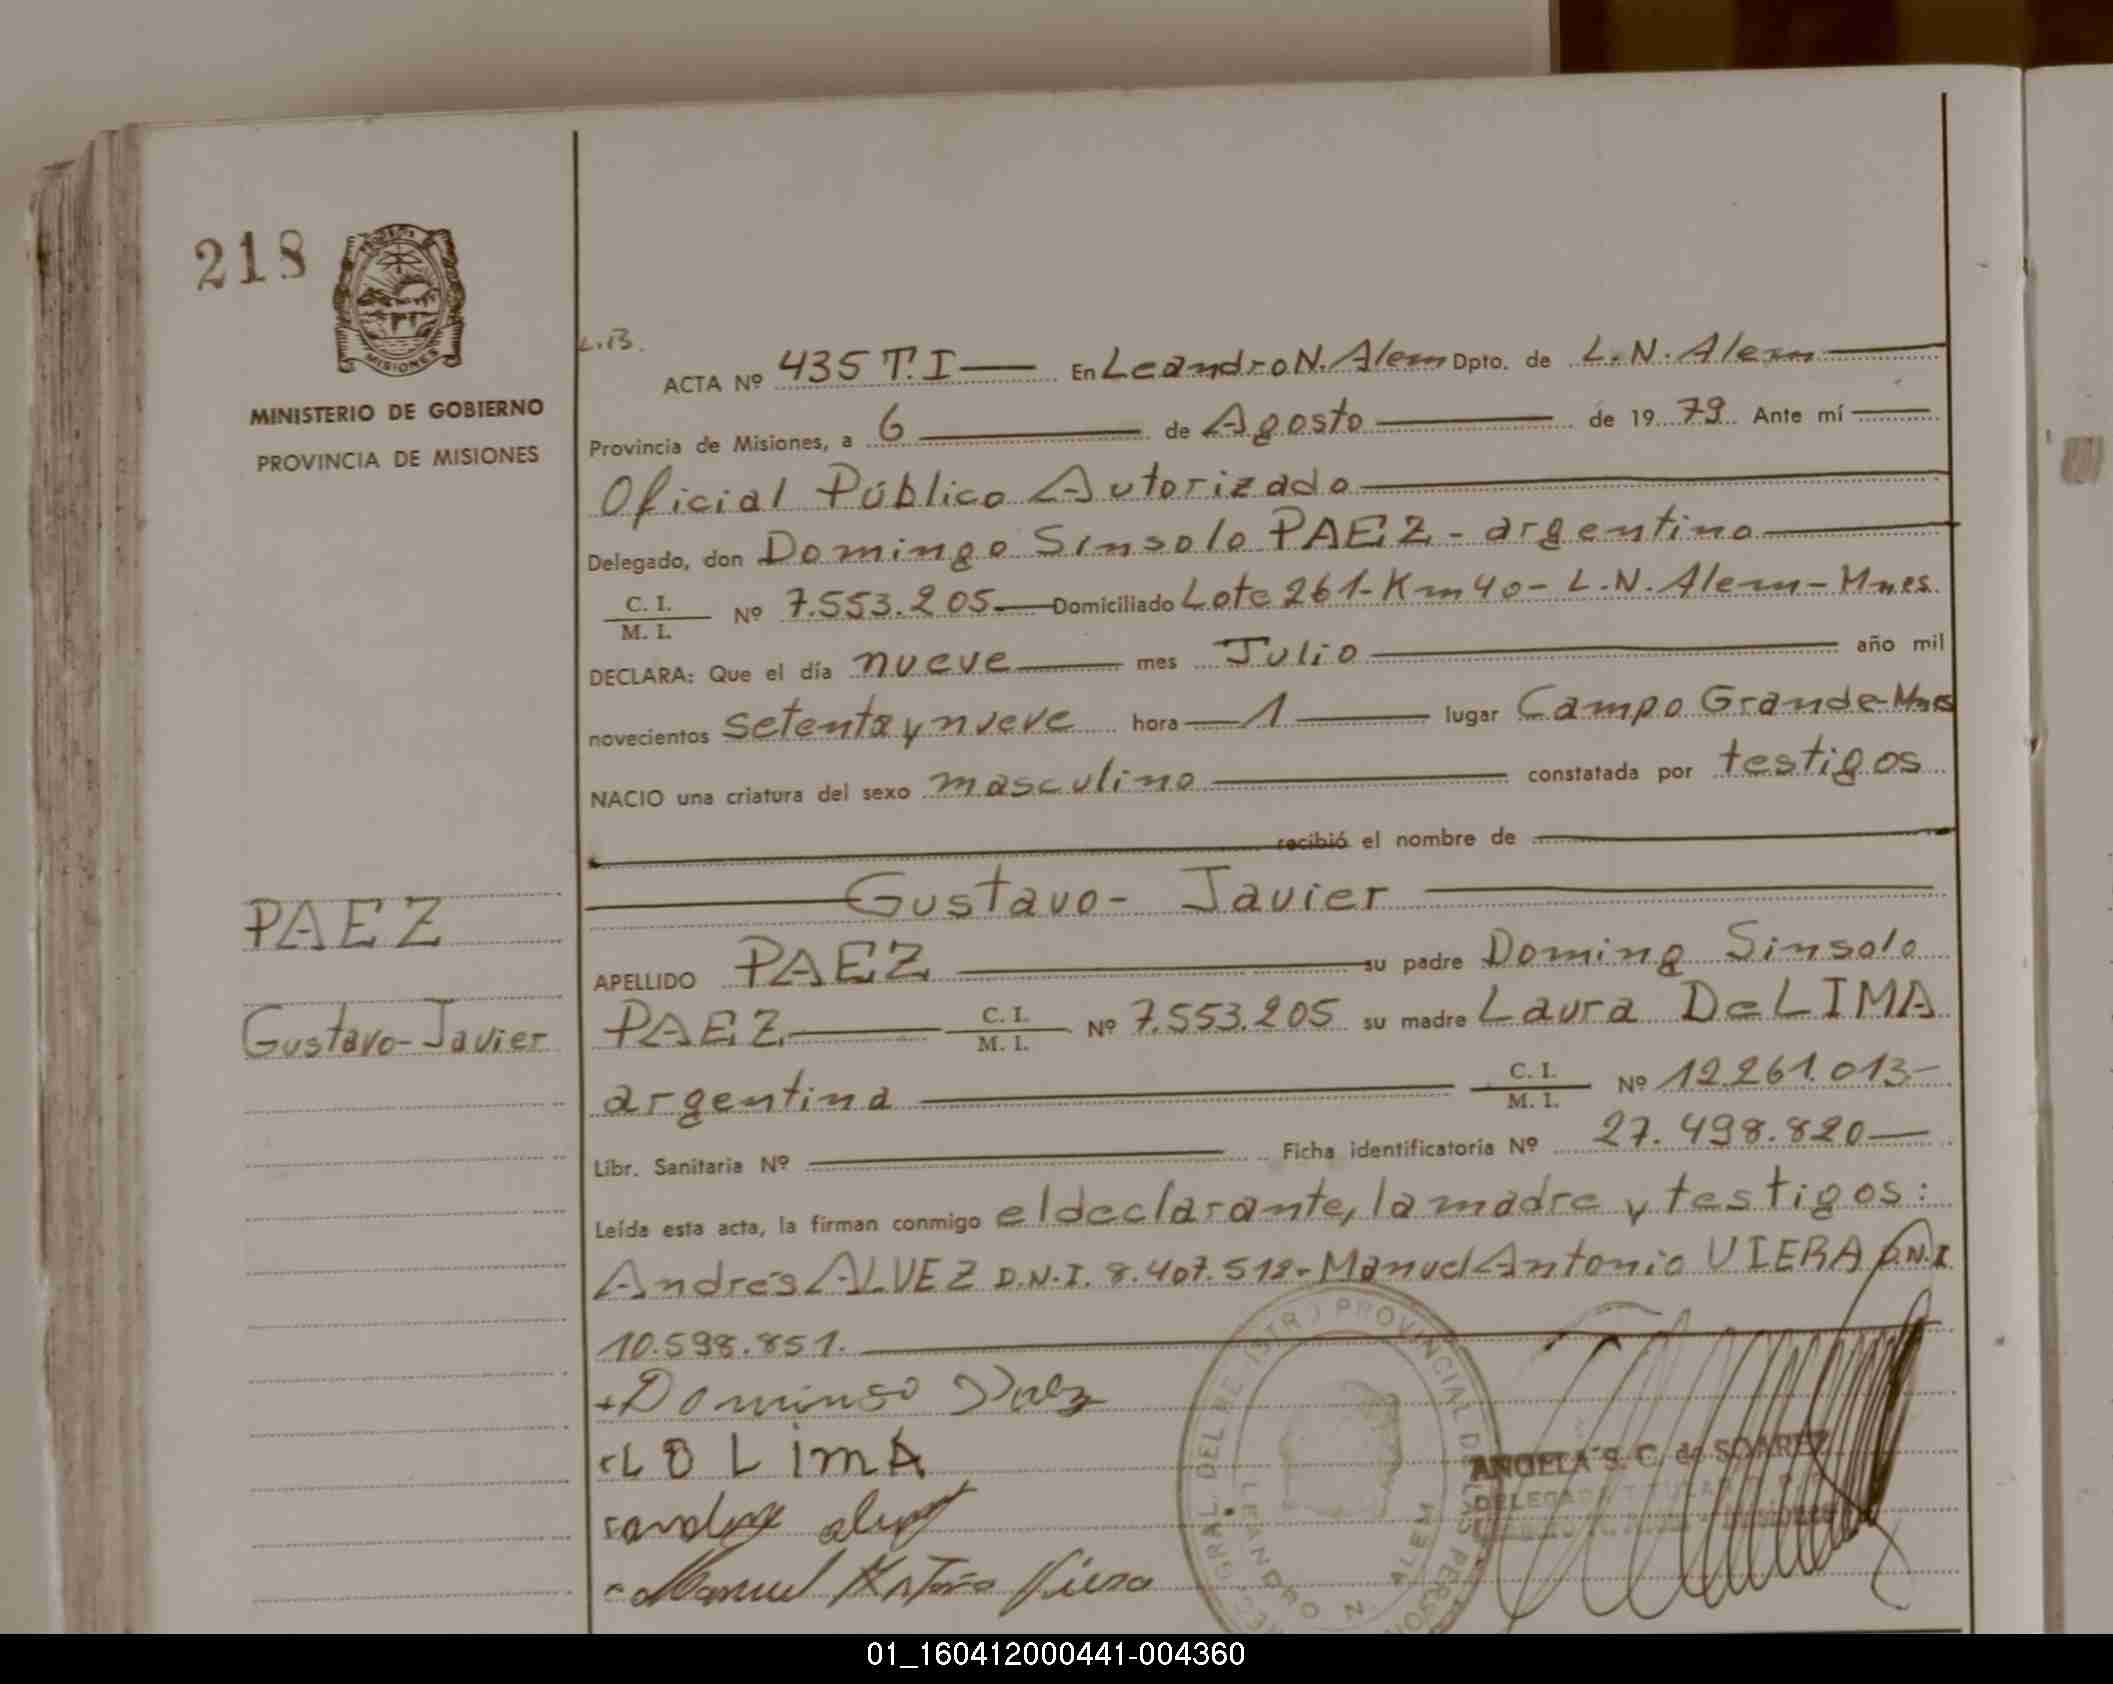 218
MISIONES
MINISTERIO DE GOBIERNO
PROVINCIA DE MISIONES
L.B.
ACTA Nº 435 T.I En Leandro N. Alem Dpto. de L.N. Alem
Provincia de Misiones, a 6 de Agosto de 1979 Ante mí
Oficial Público Autorizado
Delegado, don Domingo Sinsolo PAEZ - argentino
C. I.
M. I. Nº 7.553.205 Domiciliado Lote 261-Km40-L.N.Alem-Mnes.
DECLARA: Que el día nueve mes Julio año mil
novecientos setenta y nueve hora 1 lugar Campo Grande-Mnes
NACIO una criatura del sexo masculino constatada por testigos
recibió el nombre de
Gustavo- Javier
PAEZ
Gustavo-Javier
APELLIDO PAEZ su padre Doming Sinsolo
PAEZ C. I.
M. I. Nº 7.553.205 su madre Laura De LIMA
argentina C. I.
M. I. Nº 12.261.013-
Libr. Sanitaria Nº Ficha identificatoria Nº 27.498.820
Leída esta acta, la firman conmigo el declarante, la madre y testigos:
Andrés ALVEZ D.N.I. 8.407.518-Manuel Antonio VIERA D.N.I
10.598.851.
Domingo Paez
L D LimA
Manuel Antonio Viera
PROVINCIAL DE LAS PERSONAS
LEANDRO N. ALEM
ANGELA S. C. de SOAREZ
DELEGADA TITULAR
01_160412000441-004360